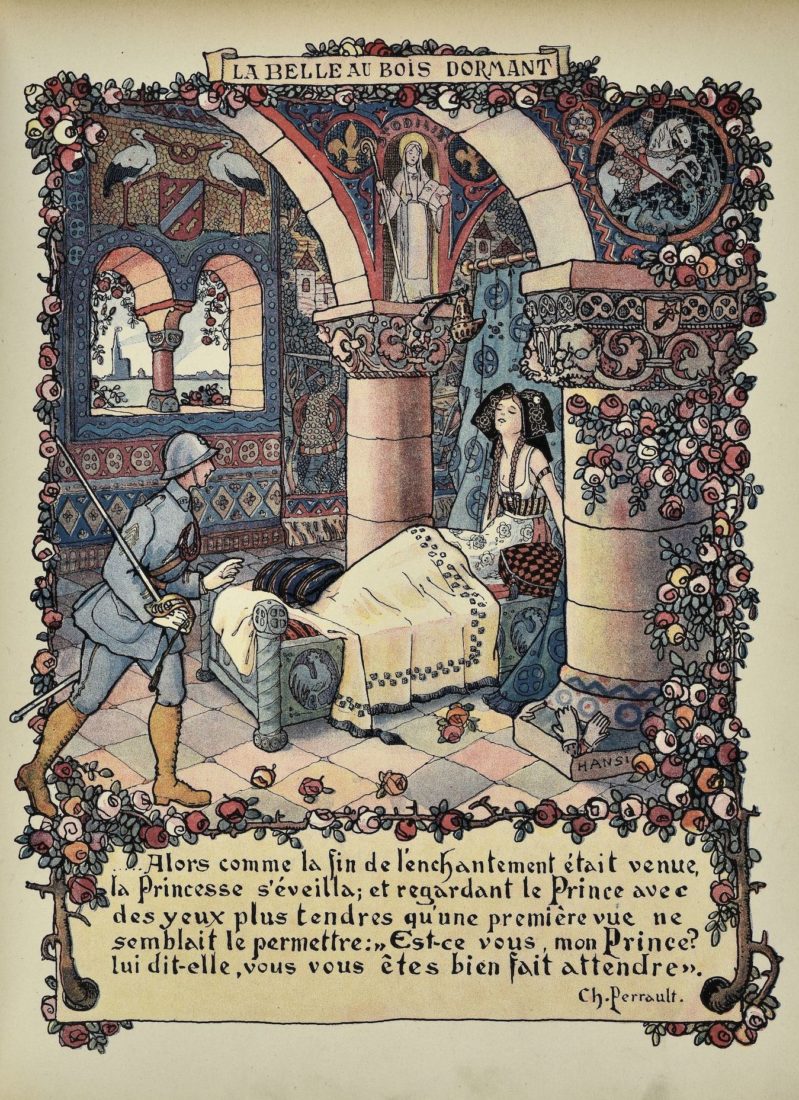 LA BELLE AU BOIS DORMANT
HANSI
.....Alors comme la fin de l'enchantement était venue,
la Princesse s'éveilla; et regardant le Prince avec
des yeux plus tendres qu'une première vue ne
semblait le permettre: „Est-ce vous, mon Prince?
lui dit-elle, vous vous êtes bien fait attendre».
Ch. Perrault.